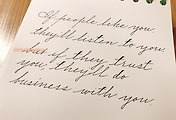 If people like you
they'll listen to you,
but if they trust
you they'll do
business with you